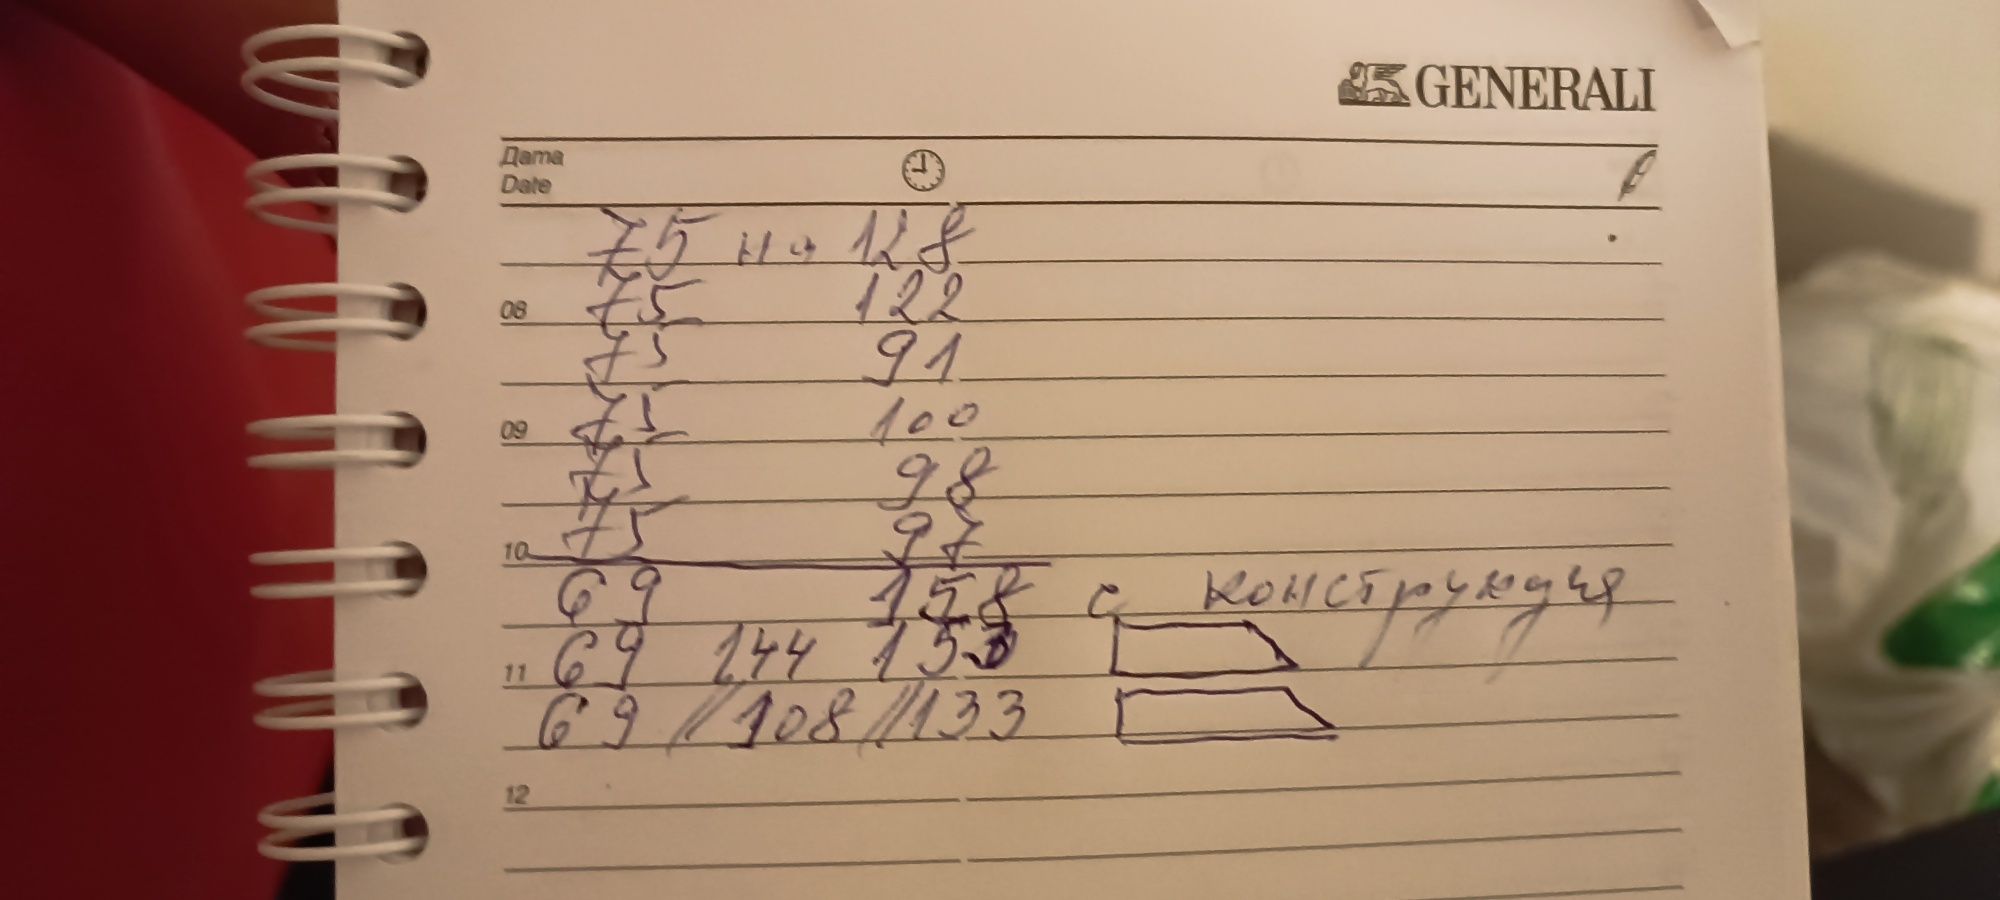 GENERALI
Дата
Date
75 на 128
08 75 122
75 91
09 75 100
75 98
10 75 97
69 158 с конструкция
11 69 144
69 // 108 // 133
12